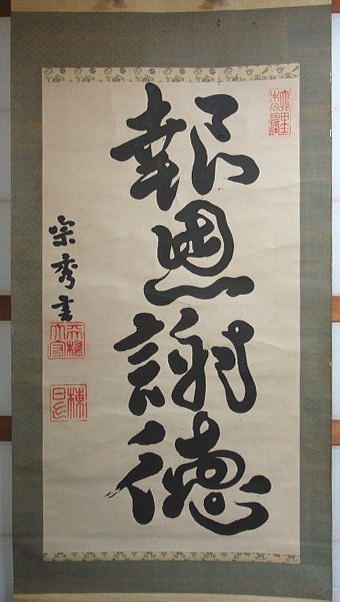 報恩謝徳
宗秀書